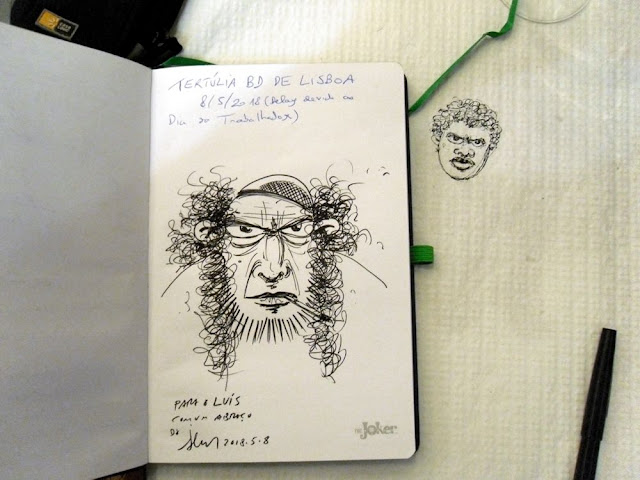 TERTÚLIA BD DE LISBOA
8/5/2018 (delay devido ao
Dia do Trabalhador)
PARA O LUÍS
COM UM ABRAÇO
DO
2018.5.8
THE JOKER